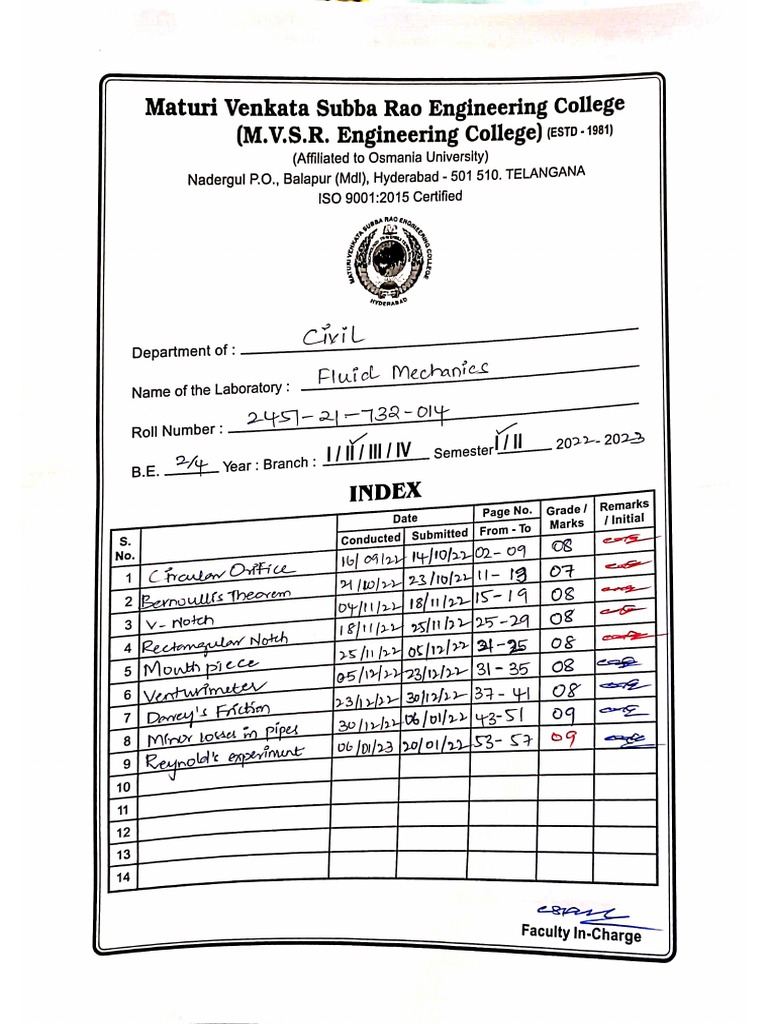 Maturi Venkata Subba Rao Engineering College
(M.V.S.R. Engineering College) (ESTD - 1981)
(Affiliated to Osmania University)
Nadergul P.O., Balapur (Mdl), Hyderabad - 501 510. TELANGANA
ISO 9001:2015 Certified
MATURI VENKATA SUBBA RAO ENGINEERING COLLEGE
HYDERABAD
Department of : Civil
Name of the Laboratory : Fluid Mechanics
Roll Number : 2451-21-732-014
B.E. 2/4 Year : Branch : I / II / III / IV Semester I / II 2022-2023
INDEX
S. No. Date Page No. Grade / Marks Remarks / Initial
Conducted Submitted From - To
1 Circular Orifice 16/09/22 14/10/22 02-09 08
2 Bernoulli's Theorem 21/10/22 23/10/22 11-13 07
3 V-Notch 04/11/22 18/11/22 15-19 08
4 Rectangular Notch 18/11/22 25/11/22 25-29 08
5 Mouthpiece 25/11/22 05/12/22 08
6 Venturimeter 05/12/22 23/12/22 31-35 08
7 Darcy's Friction 23/12/22 30/12/22 37-41 08
8 Minor losses in pipes 30/12/22 06/01/22 43-51 09
9 Reynold's experiment 06/01/23 20/01/22 53-57 09
10
11
12
13
14
Faculty In-Charge